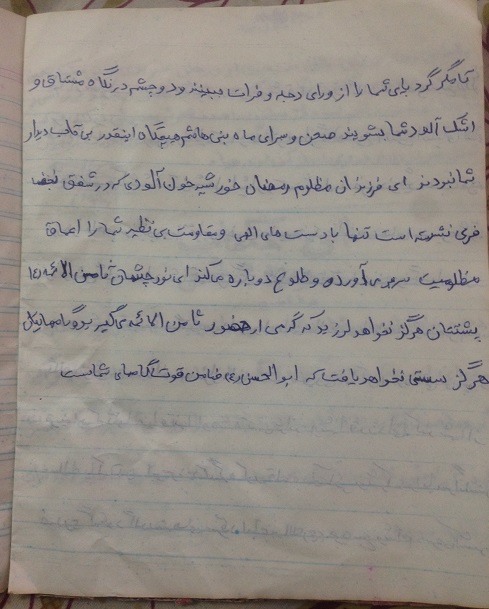 تا مگر گرد پای شما را از ورای دجله و فرات ببینند و دو چشم در نگاه مشتاق و
اشک آلود شما بشویند صحن و سرای ماه بنی هاشم هیچگاه اینقدر بی تاب دیدار
شما نبودند ای فرزندان مظلوم رمضان خورشید خون آلودی که در شفق
فری نشسته است تنها با دست های الهی و مقاومت بی نظیر شما از اعماق
مظلومیت سر بر می آورد و طلوع دوباره میکند ای نور چشمان ثامن الائمه
پشتتان هرگز نخواهد لرزید که گرمی از حضور ثامن الائمه می گیرد و گامهایتان
هرگز سستی نخواهد یافت که ابوالحسن ضامن قوت گامهای شماست